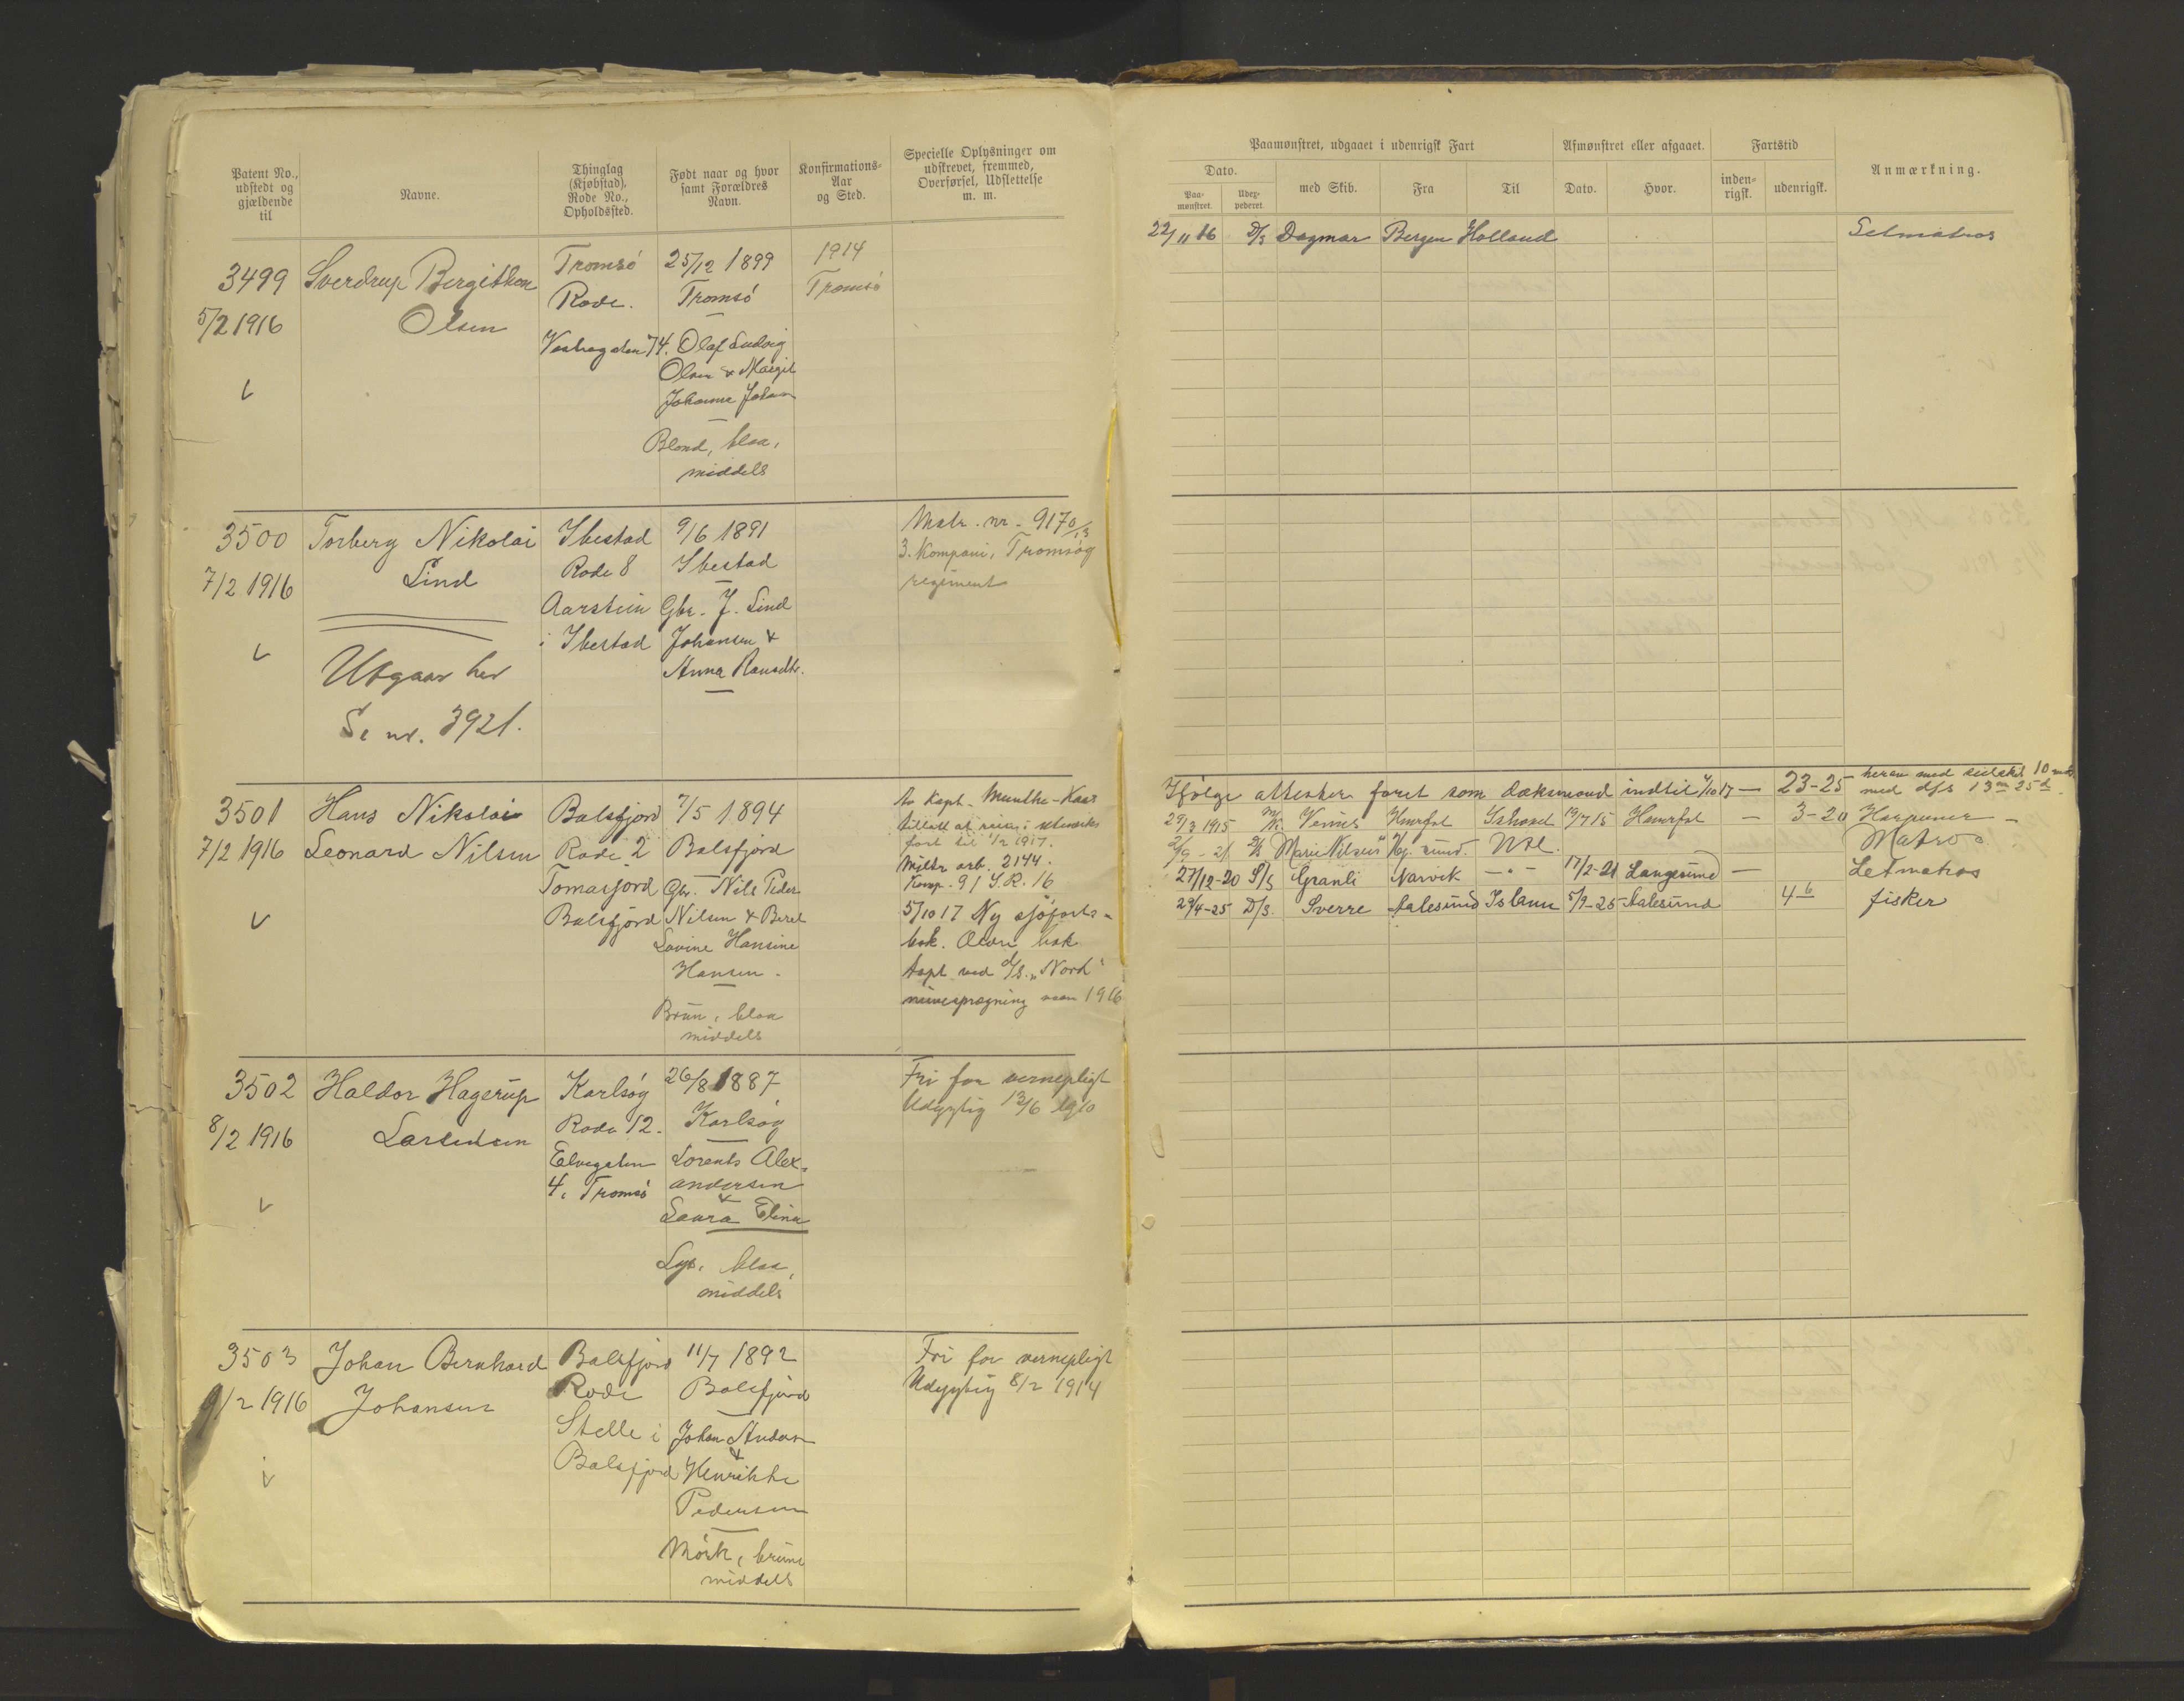 Patent No.,
udstedt og
gjældende
til
Navne.
Thinglag
(Kjøbstad),
Rode No.,
Opholdssted.
Født naar og hvor
samt Forældres
Navn.
Konfirmations-
Aar
og Sted.
Specielle Oplysninger om
udskrevet, fremmed,
Overførsel, Udslettelse
m. m.
3499
5/2 1916
Sverdrup Bergithon
Olsen
Tromsö
Rode.
Vestregaten 74.
25/12 1899
Tromsö
Olaf Ludvig
Olsen & Margit
Johanne Johan
Blond, blaa,
middels
1914
Tromsö
3500
7/2 1916
Torberg Nikolai
Lind
Utgaar her
Se nr. 3921.
Ibestad
Rode 8
Aarstein
i Ibestad
9/6 1891
Ibestad
Gbr. J. Lind
Johansen &
Anna Ransdtr.
Matr. nr. 9170/13
3. Kompani, Tromsög
regiment
3501
7/2 1916
Hans Nikolai
Leonard Nilsen
Balsfjord
Rode 2
Tomasjord
Balsfjord
7/5 1894
Balsfjord
Gbr. Nils Peder
Nilsen & Beret
Lovine Hansine
Hansen.
Brun, blaa
middels
Av Kapt. Munthe-Kaas
tillatt at reise i utenriks
fart til 1/2 1917.
Miltr arb. 2144.
Komp. 9 I.R. 16
5/10 17 Ny sjöfarts-
bok. Ældre bok
tapt ved d/s. "Nord"
minesprægning 1916
3502
8/2 1916
Haldor Hagerup
Larsensen
Karlsöy
Rode 12.
Elvegaten
4, Tromsö
26/8 1887
Karlsöy
Lorents Alex-
andersen
&
Laura Elina
Lys, blaa,
middels
Fri for vernepligt
Udygtig 13/6 1910
3503
9/2 1916
Johan Bernhard
Johansen
Balsfjord
Rode
Stelle i
Balsfjord
11/7 1892
Balsfjord
Johan Andersen
&
Henrikke
Pedersen
Mörk, brune
middels
Fri for vernepligt
Udygtig 8/2 1914
Paamønstret, udgaaet i udenrigsk Fart
Afmønstret eller afgaaet.
Fartstid
Anmærkning.
Dato.
Paa-
mønstret.
Udex-
pederet.
med Skib.
Fra
Til
Dato.
Hvor.
inden-
rigsk.
udenrigsk.
22/11 16 D/s Dagmar Bergen Holland Letmatros
Ifølge attester faret som dæksmand indtil 4/10 17 — 23-25 herav med seilskib 10 mdr.
med d/s 13 m 25 d.
29/3 1915 M/k Venus Hmrfst Ishavet 19/7 15 Hmrfst — 3-20 Harpuner
2/9 - 21 "Marie Nilsen" Hg. sund. Utl. Matros
27/12-20 S/s Granli Narvik — " — 17/2-21 Langesund — Letmatros
29/4-25 D/s. Sverre Aalesund Island 5/9-25 Aalesund 4-6 fisker